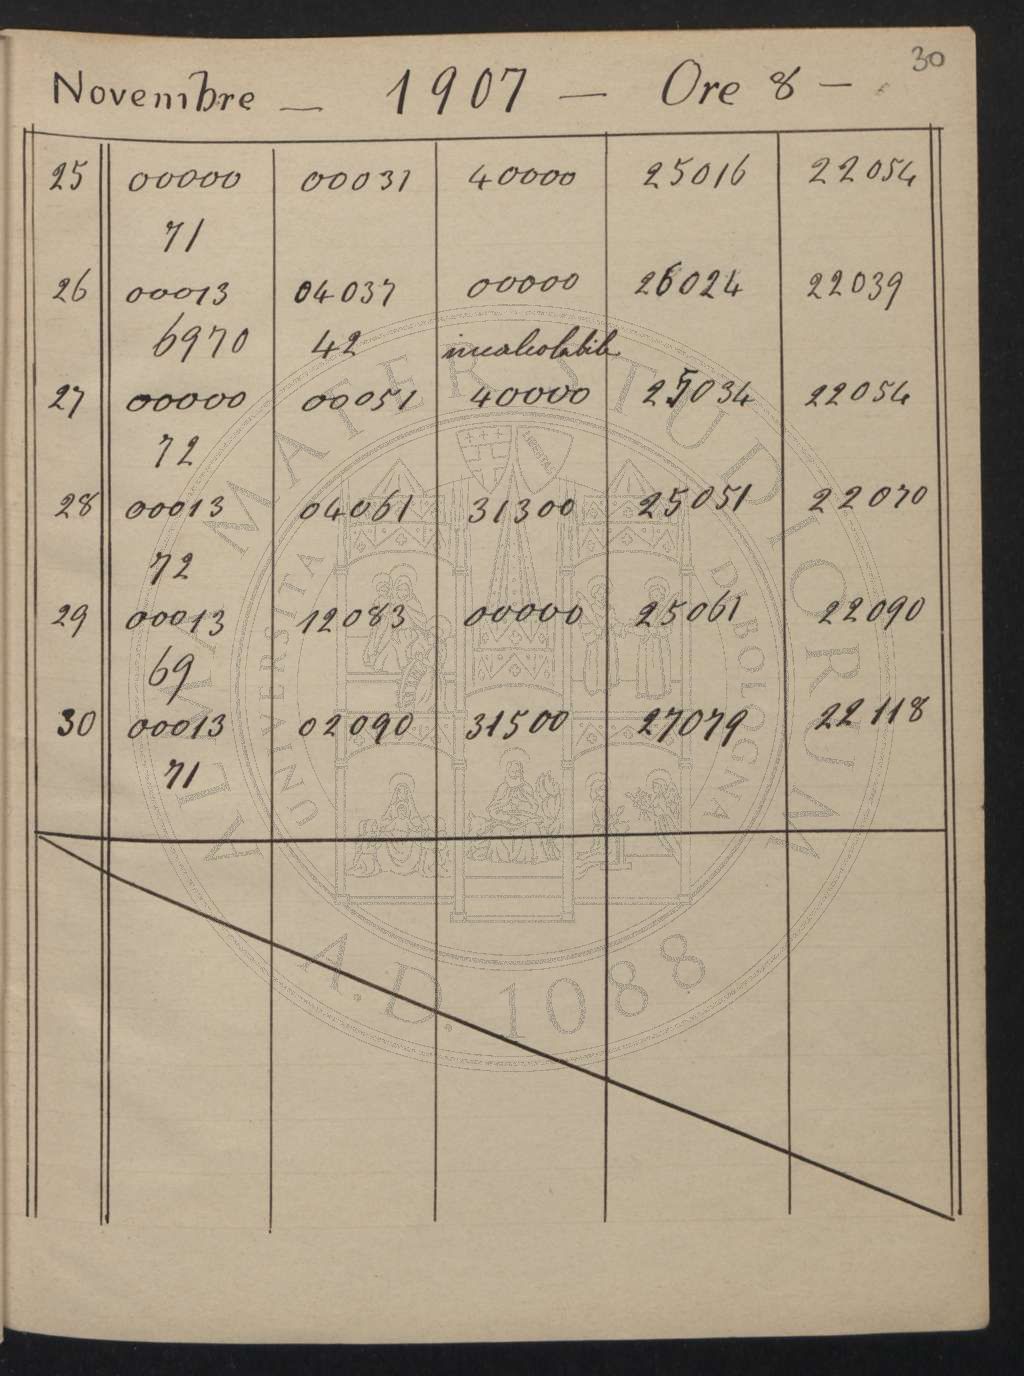 30
Novembre — 1907 — Ore 8 —
25 00000 00031 40000 25016 22054
71
26 00013 04037 00000 26024 22039
6970 42 incalcolabile
27 00000 00051 40000 25034 22054
72
28 00013 04061 31300 25051 22070
72
29 00013 12083 00000 25061 22090
69
30 00013 02090 31500 27079 22118
71
ALMA MATER STUDIORUM
UNIVERSITA DI BOLOGNA
LIBERTAS
A.D. 1088